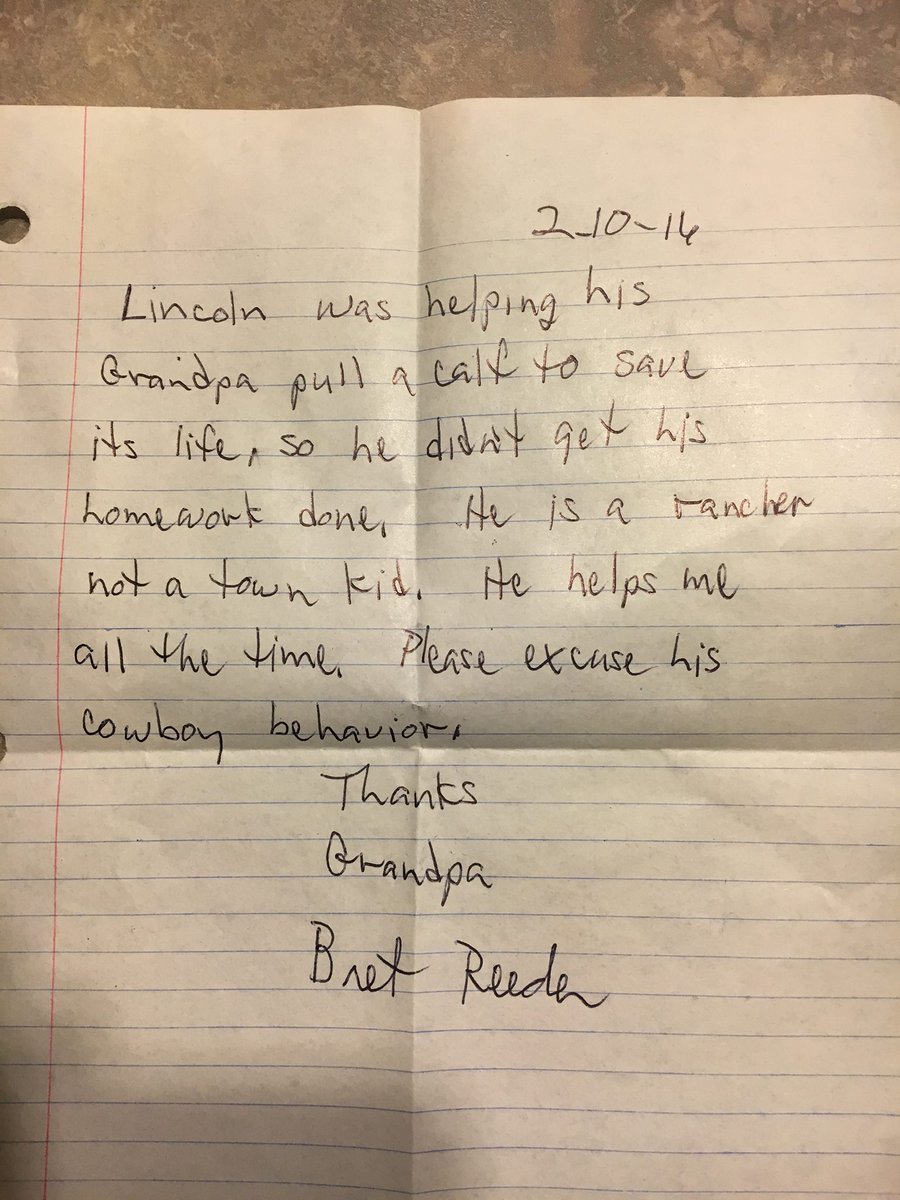 2-10-16
Lincoln was helping his
Grandpa pull a calf to save
its life, so he didn't get his
homework done. He is a rancher
not a town kid. He helps me
all the time. Please excuse his
cowboy behavior.
Thanks
Grandpa
Bret Reeder